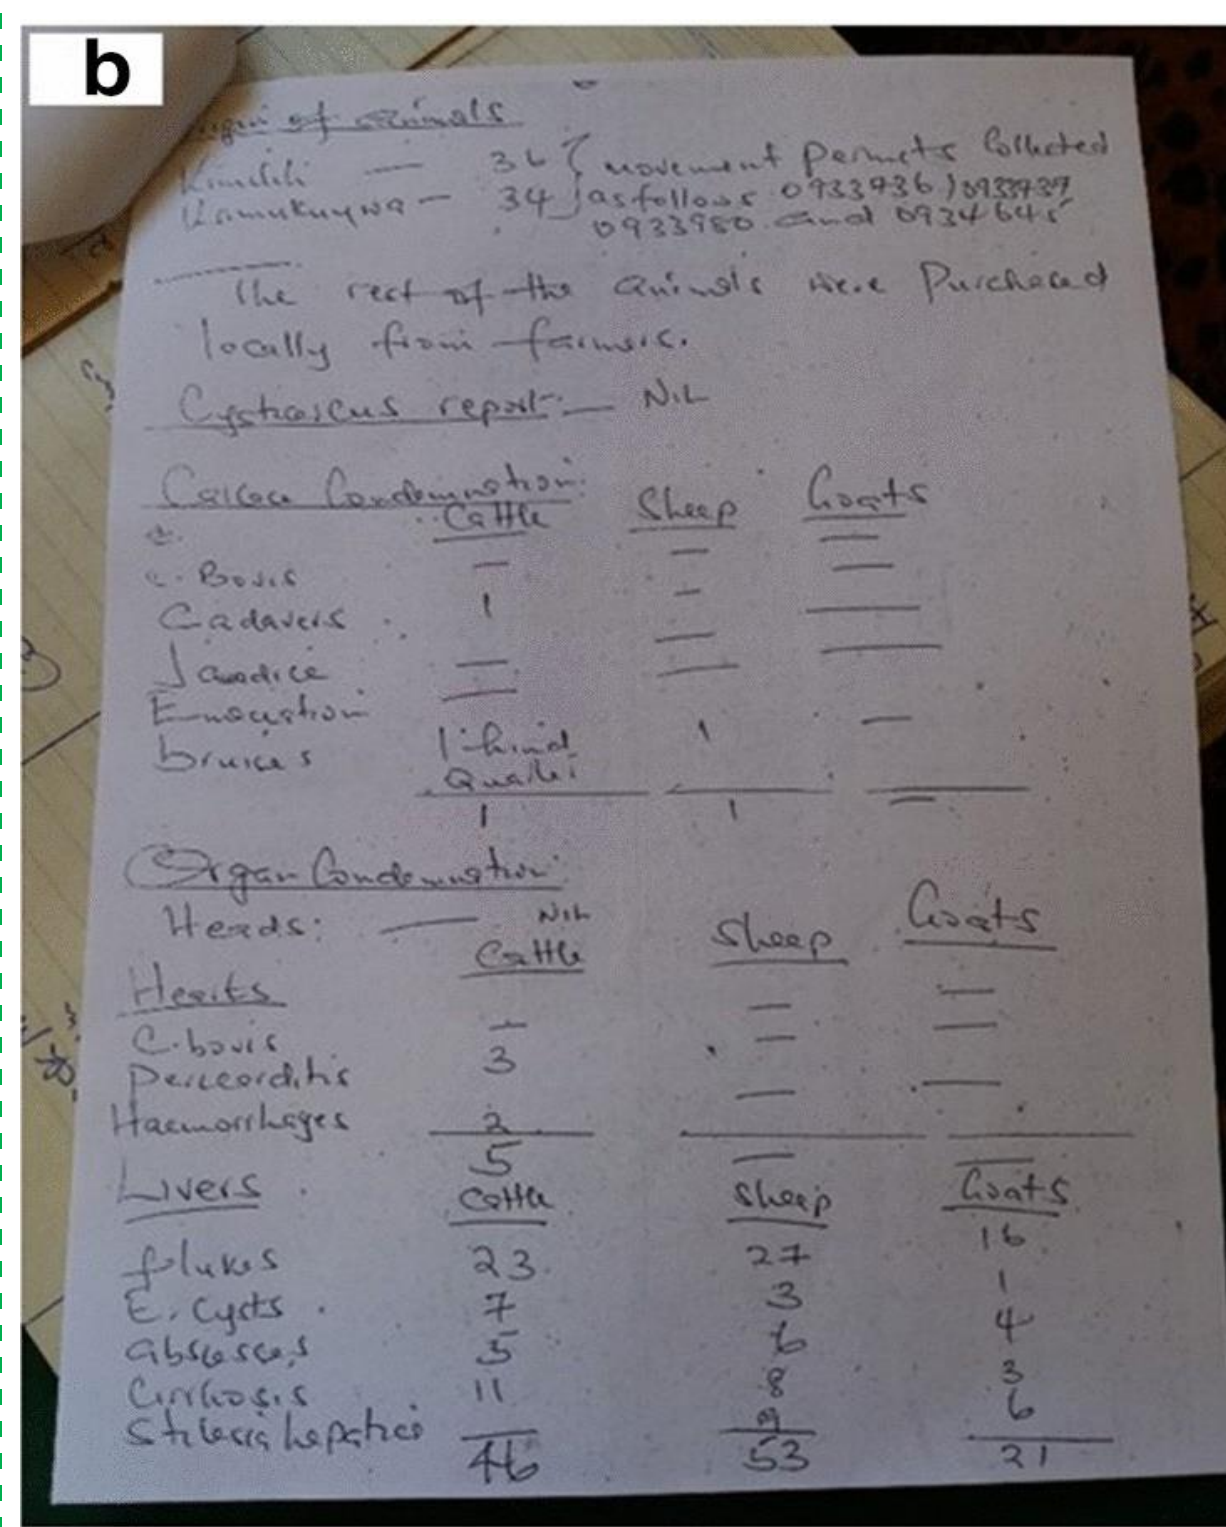 b
of animals
Kimilili — 36 { movement permits Collected
Kamukuywa — 34 } as follows 0933936, 0933937
0933980 and 0934645
The rest of the animals were Purchased
locally from farmers.
Cysticercus report:— NIL
Carcase Condemnation:
Cattle Sheep Goats
C. Bovis — — —
Cadavers 1 — —
Jaundice — — —
Emaciation — — —
bruises 1 hind 1 —
Quarter
1 1 —
Organ Condemnation:
Heads: — NIL
Cattle Sheep Goats
Hearts
C. bovis — — —
Pericarditis 3 — —
Haemorrhages 2 — —
5 — —
Livers Cattle Sheep Goats
flukes 23 27 16
E. Cysts 7 3 1
abscesses 5 6 4
Cirrhosis 11 8 3
Stilesia hepatica 9 6
46 53 21